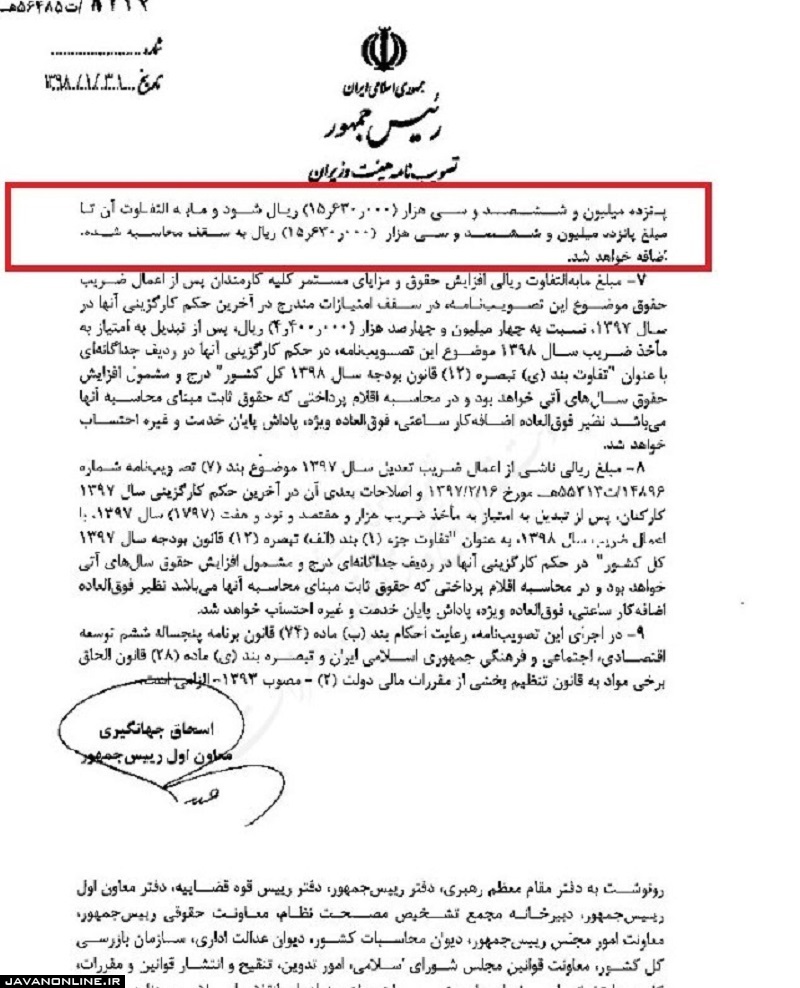 /ت۵۶۴۸۵هـ
شماره
تاریخ ۱۳۹۸/۱/۳۱
جمهوری اسلامی ایران
رئیس جمهور
تصویب نامه هیئت وزیران
پانزده میلیون و ششصد و سی هزار (۱۵٫۶۳۰٫۰۰۰) ریال شود و مابه التفاوت آن تا
مبلغ پانزده میلیون و ششصد و سی هزار (۱۵٫۶۳۰٫۰۰۰) ریال به سقف محاسبه شده،
اضافه خواهد شد.
۷- مبلغ مابه‌التفاوت ریالی افزایش حقوق و مزایای مستمر کلیه کارمندان پس از اعمال ضریب
حقوق موضوع این تصویب‌نامه، در سقف امتیازات مندرج در آخرین حکم کارگزینی آنها در
سال ۱۳۹۷، نسبت به چهار میلیون و چهارصد هزار (۴٫۴۰۰٫۰۰۰) ریال، پس از تبدیل به امتیاز به
مأخذ ضریب سال ۱۳۹۸ موضوع این تصویب‌نامه، در حکم کارگزینی آنها در ردیف جداگانه‌ای
با عنوان "تفاوت بند (ی) تبصره (۱۲) قانون بودجه سال ۱۳۹۸ کل کشور" درج و مشمول افزایش
حقوق سال‌های آتی خواهد بود و در محاسبه اقلام پرداختی که حقوق ثابت مبنای محاسبه آنها
می‌باشد نظیر فوق‌العاده اضافه‌کار ساعتی، فوق‌العاده ویژه، پاداش پایان خدمت و غیره احتساب
خواهد شد.
۸- مبلغ ریالی ناشی از اعمال ضریب تعدیل سال ۱۳۹۷ موضوع بند (۷) تصویب‌نامه شماره
۱۴۸۹۶/ت۵۵۳۱۳هـ مورخ ۱۳۹۷/۲/۱۶ و اصلاحات بعدی آن در آخرین حکم کارگزینی سال ۱۳۹۷
کارکنان، پس از تبدیل به امتیاز به مأخذ ضریب هزار و هفتصد و نود و هفت (۱۷۹۷) سال ۱۳۹۷، با
اعمال ضریب سال ۱۳۹۸، به عنوان "تفاوت جزء (۱) بند (الف) تبصره (۱۲) قانون بودجه سال ۱۳۹۷
کل کشور" در حکم کارگزینی آنها در ردیف جداگانه‌ای درج و مشمول افزایش حقوق سال‌های آتی
خواهد بود و در محاسبه اقلام پرداختی که حقوق ثابت مبنای محاسبه آنها می‌باشد نظیر فوق‌العاده
اضافه‌کار ساعتی، فوق‌العاده ویژه، پاداش پایان خدمت و غیره احتساب خواهد شد.
۹- در اجرای این تصویب‌نامه، رعایت احکام بند (ب) ماده (۷۴) قانون برنامه پنجساله ششم توسعه
اقتصادی، اجتماعی و فرهنگی جمهوری اسلامی ایران و تبصره بند (ی) ماده (۲۸) قانون الحاق
برخی مواد به قانون تنظیم بخشی از مقررات مالی دولت (۲) - مصوب ۱۳۹۳- الزامی است.
اسحاق جهانگیری
معاون اول رییس‌جمهور
رونوشت به دفتر مقام معظم رهبری، دفتر رییس‌جمهور، دفتر رییس قوه قضاییه، دفتر معاون اول
رییس‌جمهور، دبیرخانه مجمع تشخیص مصلحت نظام، معاونت حقوقی رییس‌جمهور،
معاونت امور مجلس رییس‌جمهور، دیوان محاسبات کشور، دیوان عدالت اداری، سازمان بازرسی
کل کشور، معاونت قوانین مجلس شورای اسلامی، امور تدوین، تنقیح و انتشار قوانین و مقررات،
JAVANONLINE.IR